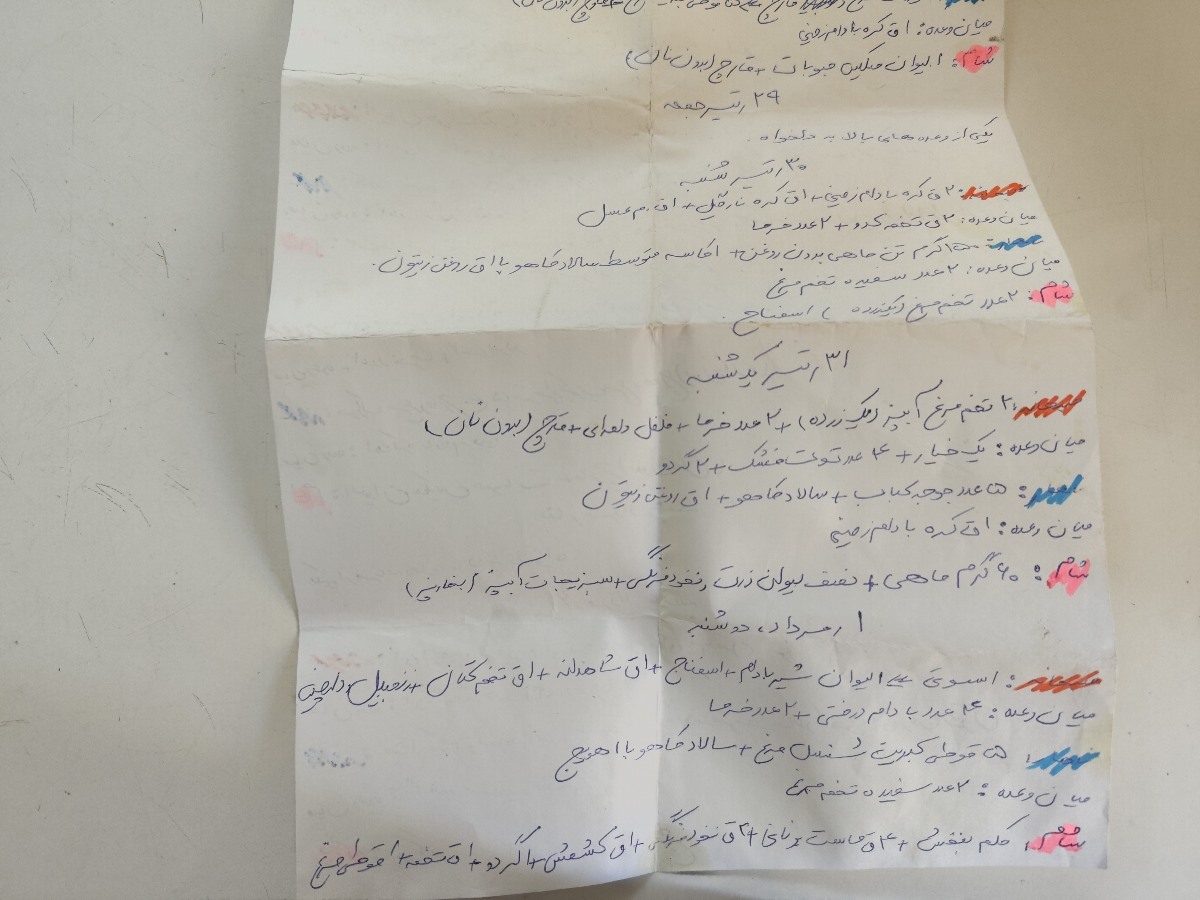 میان وعده: ۱ق کره بادام زمینی
شام: ۱ لیوان میکس حبوبات + قارچ (بدون نان)
۲۹ تیر جمعه
یکی از وعده های بالا به دلخواه.
۳۰ تیر شنبه
صبحانه: ۲ق کره بادام زمینی + ۱ق کره نارگیل + ۱ق.م عسل
میان وعده: ۲ق تخمه کدو + ۲ عدد خرما
۱۵۰ گرم تن ماهی بدون روغن + ۱ کاسه متوسط سالاد کاهو با ۱ق روغن زیتون.
میان وعده: ۲ عدد سفیده تخم مرغ
شام: ۲ عدد تخم مرغ (یک زرده) اسفناج.
۳۱ تیر یکشنبه
صبحانه: ۲ تخم مرغ آبپز (یک زرده) + ۲ عدد خرما + فلفل دلمه‌ای + قارچ (بدون نان)
میان وعده: یک خیار + ۴ عدد توت خشک + ۲ گردو
نهار: ۵ عدد جوجه کباب + سالاد کاهو + ۱ق روغن زیتون
میان وعده: ۱ق کره بادام زمینی
شام: ۶۰ گرم ماهی + نصف لیوان ذرت و نخود فرنگی + سبزیجات آبپز (بخارپز)
۱ مرداد، دوشنبه
صبحانه: اسموتی ← ۱ لیوان شیر بادام + اسفناج + ۱ق شاهدانه + ۱ق تخم کتان + زنجبیل و دارچین
میان وعده: ۴ عدد بادام درختی + ۲ عدد خرما
نهار: ۵ قوطی کبریت شنسل مرغ + سالاد کاهو با ۱ هویج
میان وعده: ۲ عدد سفیده تخم مرغ
شام: کلم بنفش + ۴ق ماست + ۲ق نخود فرنگی + ۱ق کشمش + ۱ گردو + ۱ق تخمه + ۱ قوطی مرغ